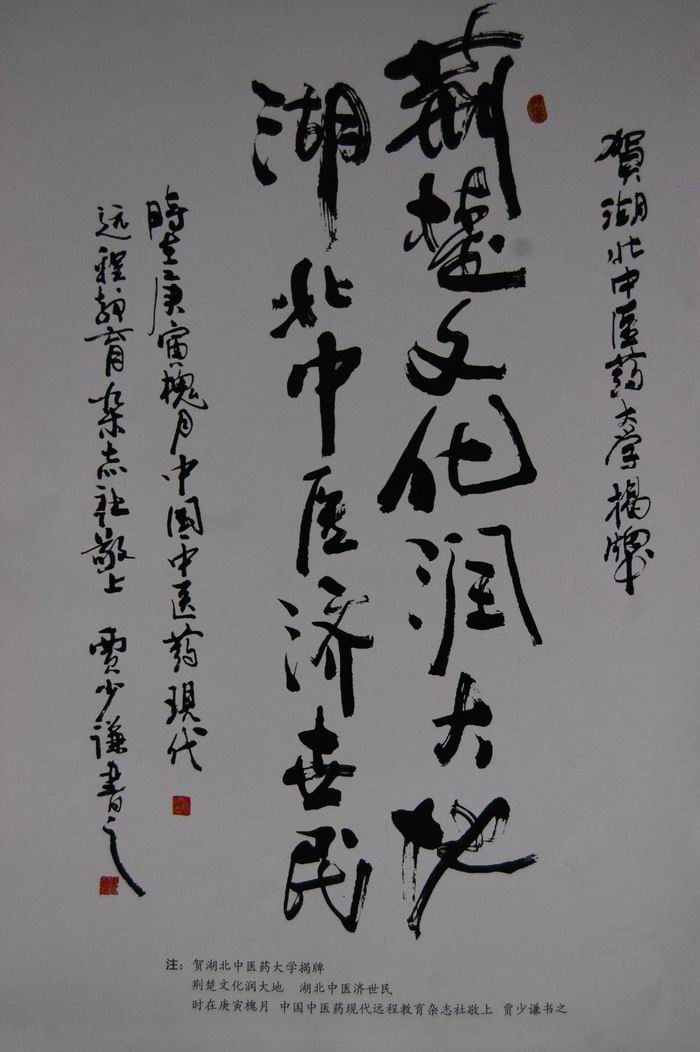 賀湖北中医药大学揭牌
荆楚文化润大地
湖北中医济世民
時在庚寅槐月中国中医药現代
远程教育杂志社敬上 贾少谦書之
注：贺湖北中医药大学揭牌
荆楚文化润大地 湖北中医济世民
时在庚寅槐月 中国中医药现代远程教育杂志社敬上 贾少谦书之